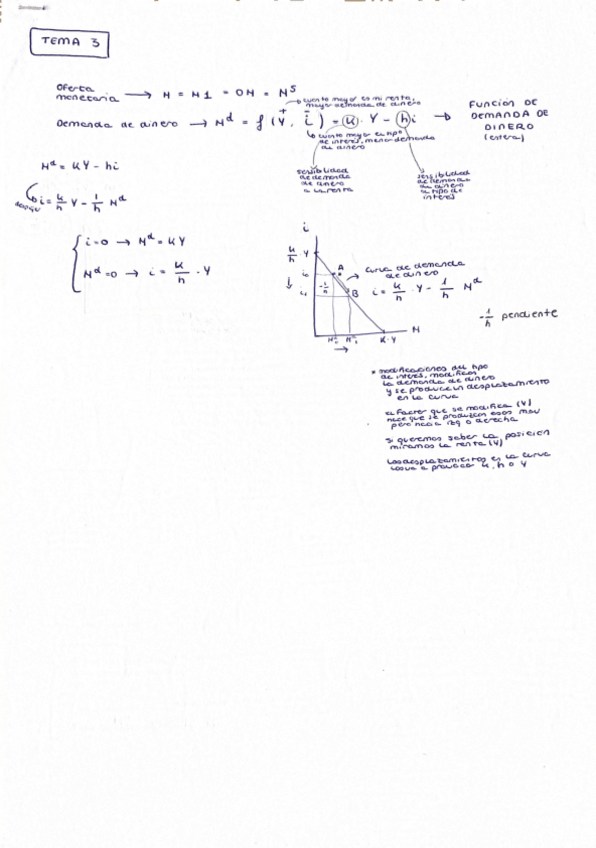 TEMA 3
Oferta
monetaria → M = M1 = OM = Mˢ
Demanda de dinero → Mᵈ = f (Y⁺, i⁻) = k · Y - hi → FUNCIÓN DE
DEMANDA DE
DINERO
(entera)
cuanto mayor es mi renta,
mayor demanda de dinero
cuanto mayor el tipo
de interés, menor demanda
de dinero
sensibilidad
de demanda
de dinero
a la renta
sensibilidad
de demanda
de dinero
al tipo de
interés
Mᵈ = kY - hi
i = k/h Y - 1/h Mᵈ
i=0 → Mᵈ = KY
Mᵈ=0 → i = k/h · Y
i
k/h Y
A
curva de demanda
de dinero
-1/h
B
i = k/h · Y - 1/h Mᵈ
M
K·Y
-1/h pendiente
* modificaciones del tipo
de interés, modifican
la demanda de dinero
y se produce un desplazamiento
en la curva
el factor que se modifica (Y)
hace que se produzcan esos mov
pero hacia izq o derecha
si queremos saber la posición
miramos la renta (Y)
Los desplazamientos en la curva
los va a provocar k, h o Y